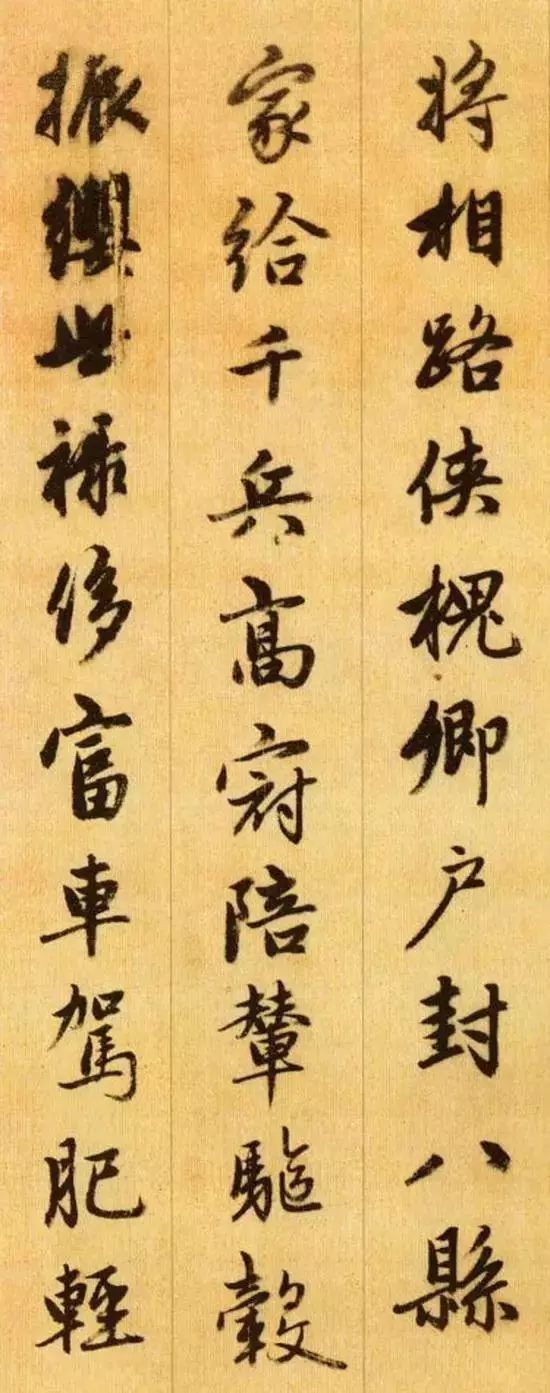 將相路俠槐卿戶封八縣
家給千兵高冠陪輦驅轂
振纓世祿侈富車駕肥輕